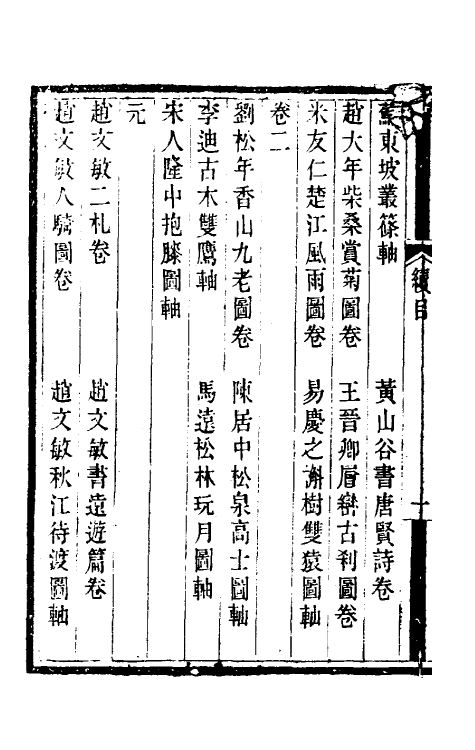 蘇東坡叢篠軸　黃山谷書唐賢詩卷
趙大年柴桑賞菊圖卷　王晉卿層巒古刹圖卷
米友仁楚江風雨圖卷　易慶之槲樹雙猿圖軸
卷二
劉松年香山九老圖卷　陳居中松泉高士圖軸
李迪古木雙鷹軸　馬遠松林玩月圖軸
宋人隆中抱膝圖軸
元
趙文敏二札卷　趙文敏書遠遊篇卷
趙文敏人騎圖卷　趙文敏秋江待渡圖軸
續目